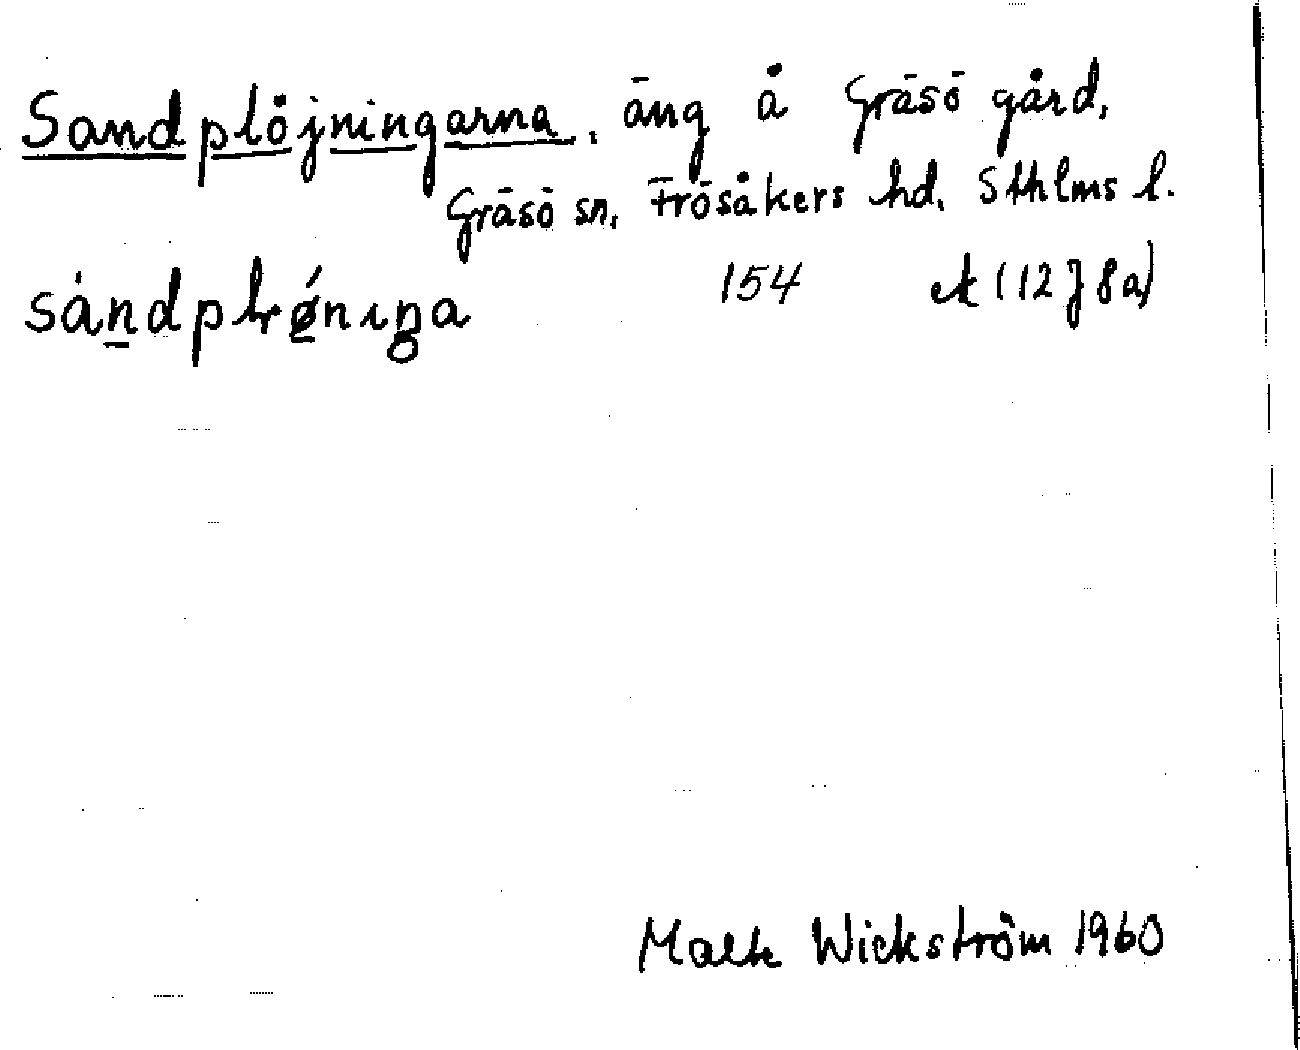 Sandplöjningarna, äng å Gräsö gård,
Gräsö sn, Frösåkers hd, Sthlms l.
154 ek (12 J 8a)
Malte Wickström 1960